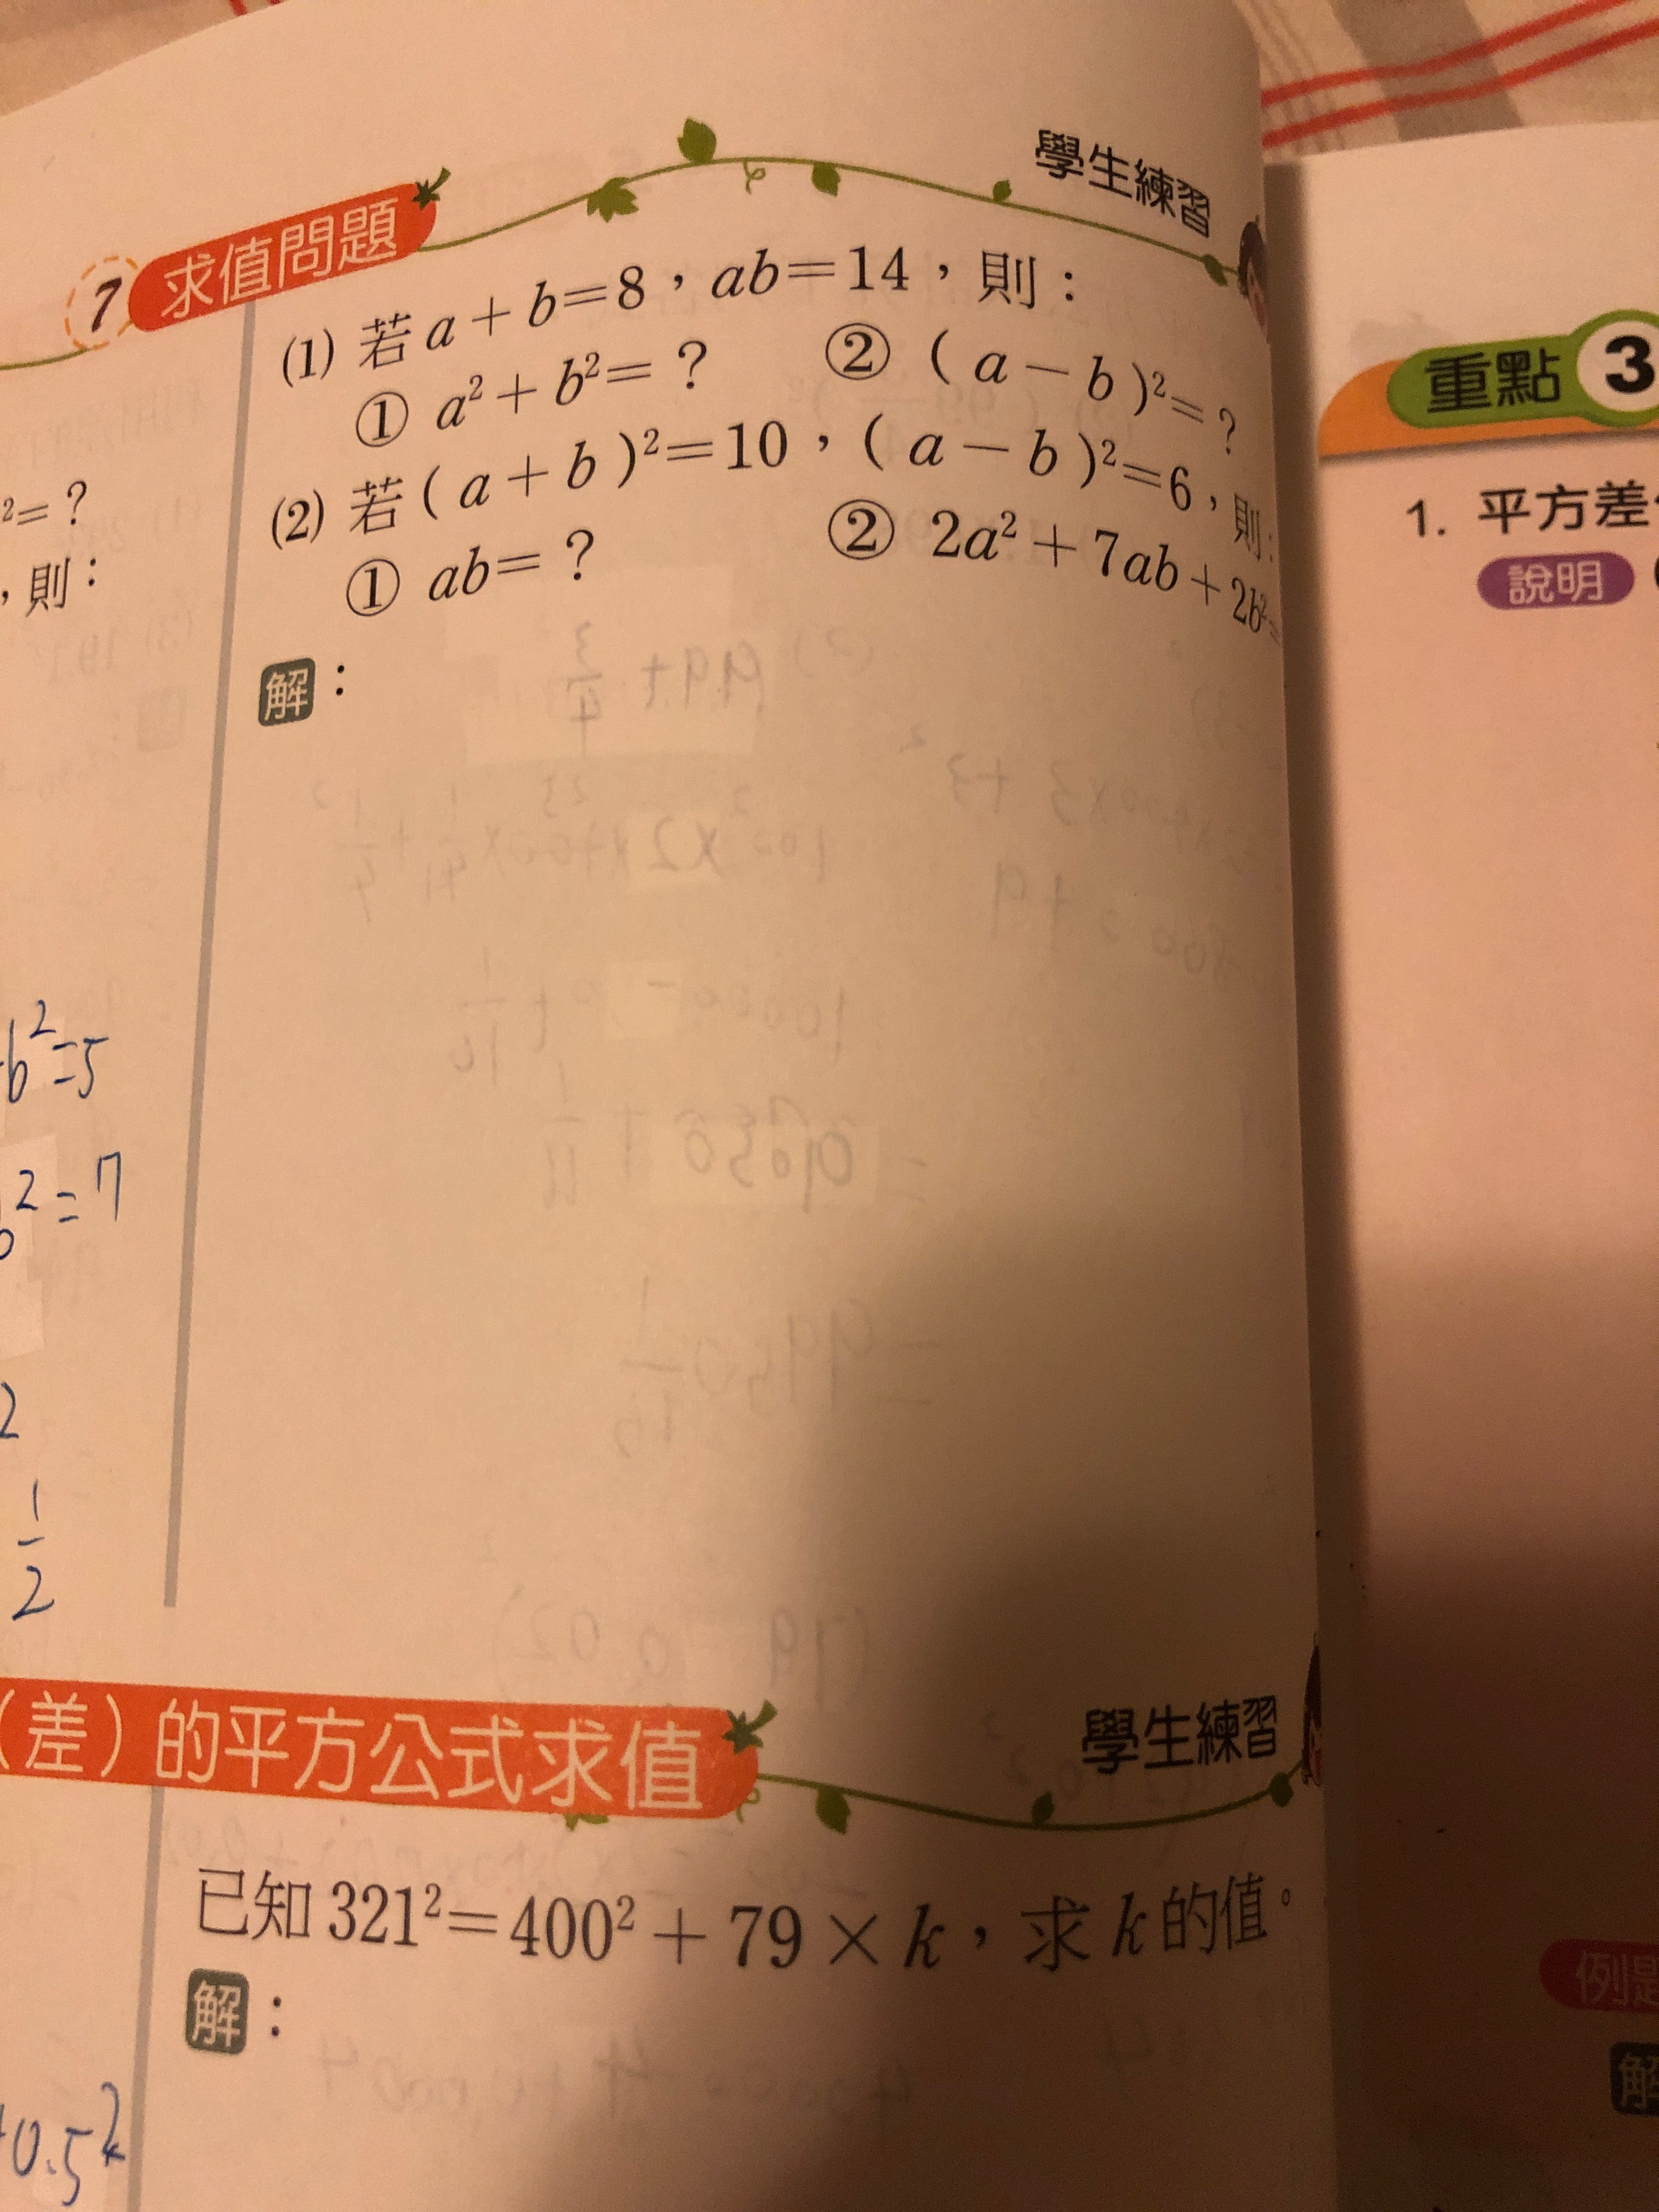 學生練習
7 求值問題
(1) 若 a+b=8，ab=14，則：
① a²+b²=？ ② (a-b)²=？
(2) 若(a+b)²=10，(a-b)²=6，則：
① ab=？ ② 2a²+7ab+2b²=
解：
²=？
，則：
b²=5
²=7
2
1/2
(差)的平方公式求值
學生練習
已知 321²=400²+79×k，求 k 的值。
解：
0.5²
重點 3
1. 平方差
說明
例題
解